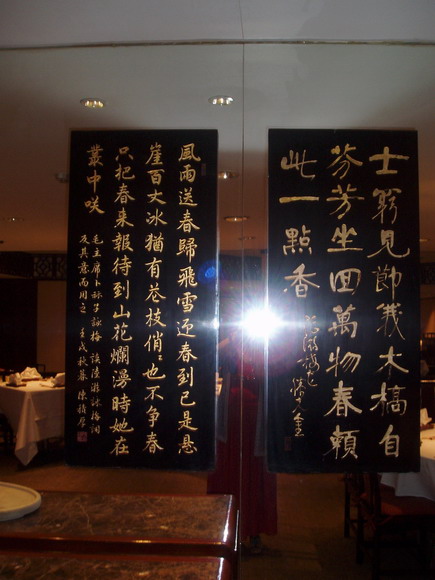 士窮見節義木槁自
芬芳坐回萬物春賴
此一點香
風雨送春歸飛雪迎春到已是懸
崖百丈冰猶有花枝俏〻也不争春
只把春來報待到山花爛漫時她在
叢中咲
毛主席卜祘子詠梅 讀陸游詠梅詞
反其意而用之 壬戌秋暮